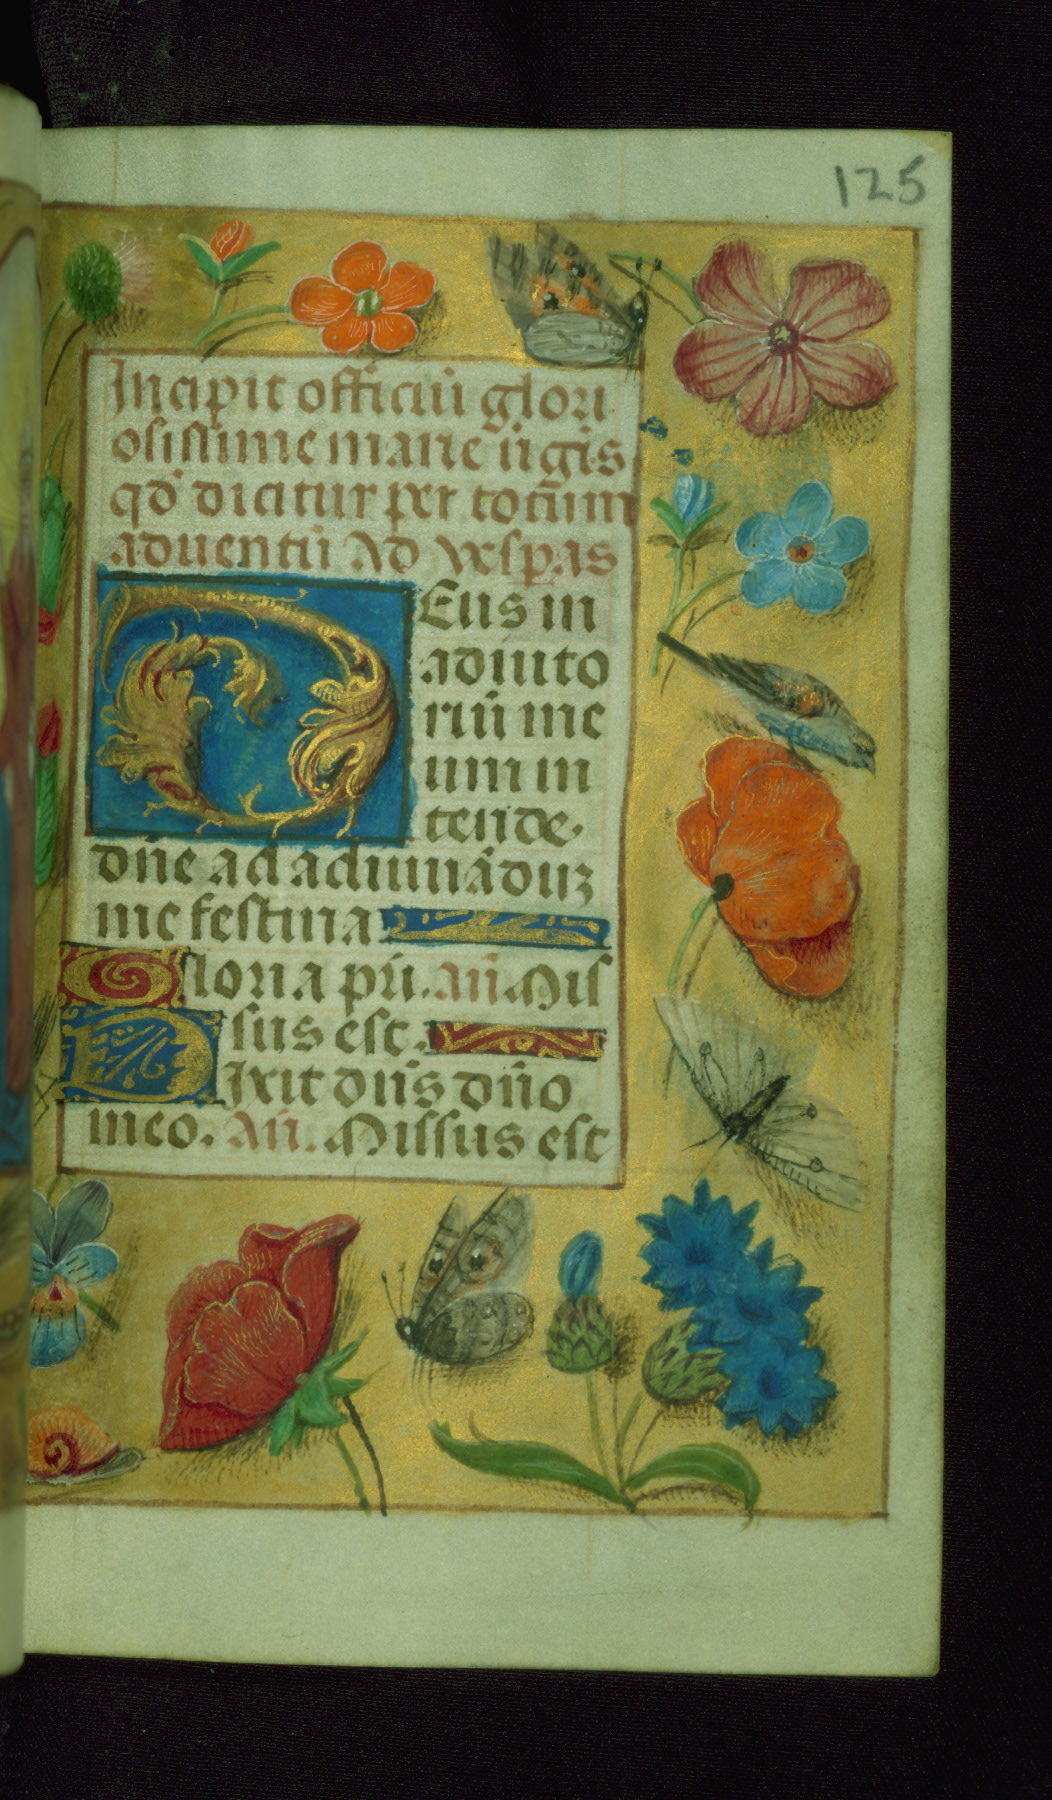 125
Incipit officiū glori
osissime marie ū̄gīs
qd̄ dicitur per totum
aduentū Ad vesp̱as
DEus in
adiuto
riū me
um in
tende.
dn̄e ad adiuuādūꝫ
me festina
Gloria pr̄i. an̄. Mis
sus est.
Dixit dn̄s dn̄o
meo. an̄. Missus est